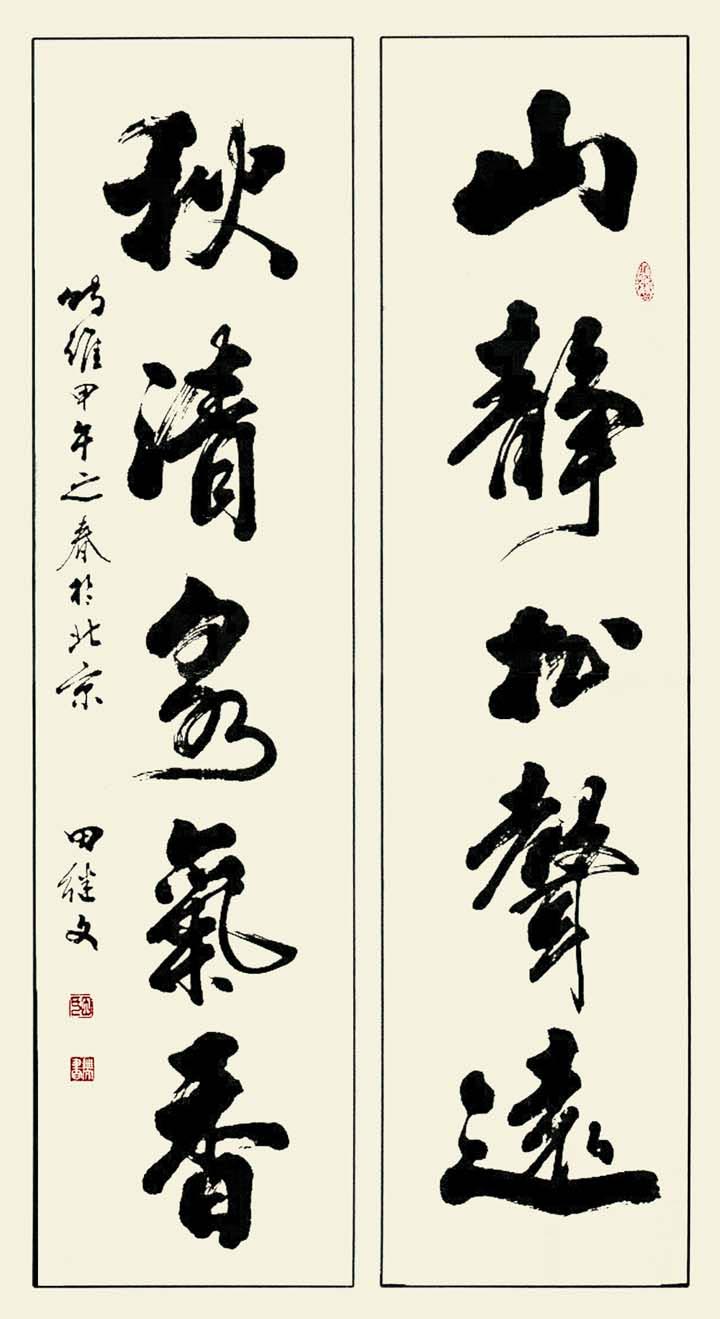 山靜松聲遠
秋清泉氣香
時維甲午之春於北京
田继文